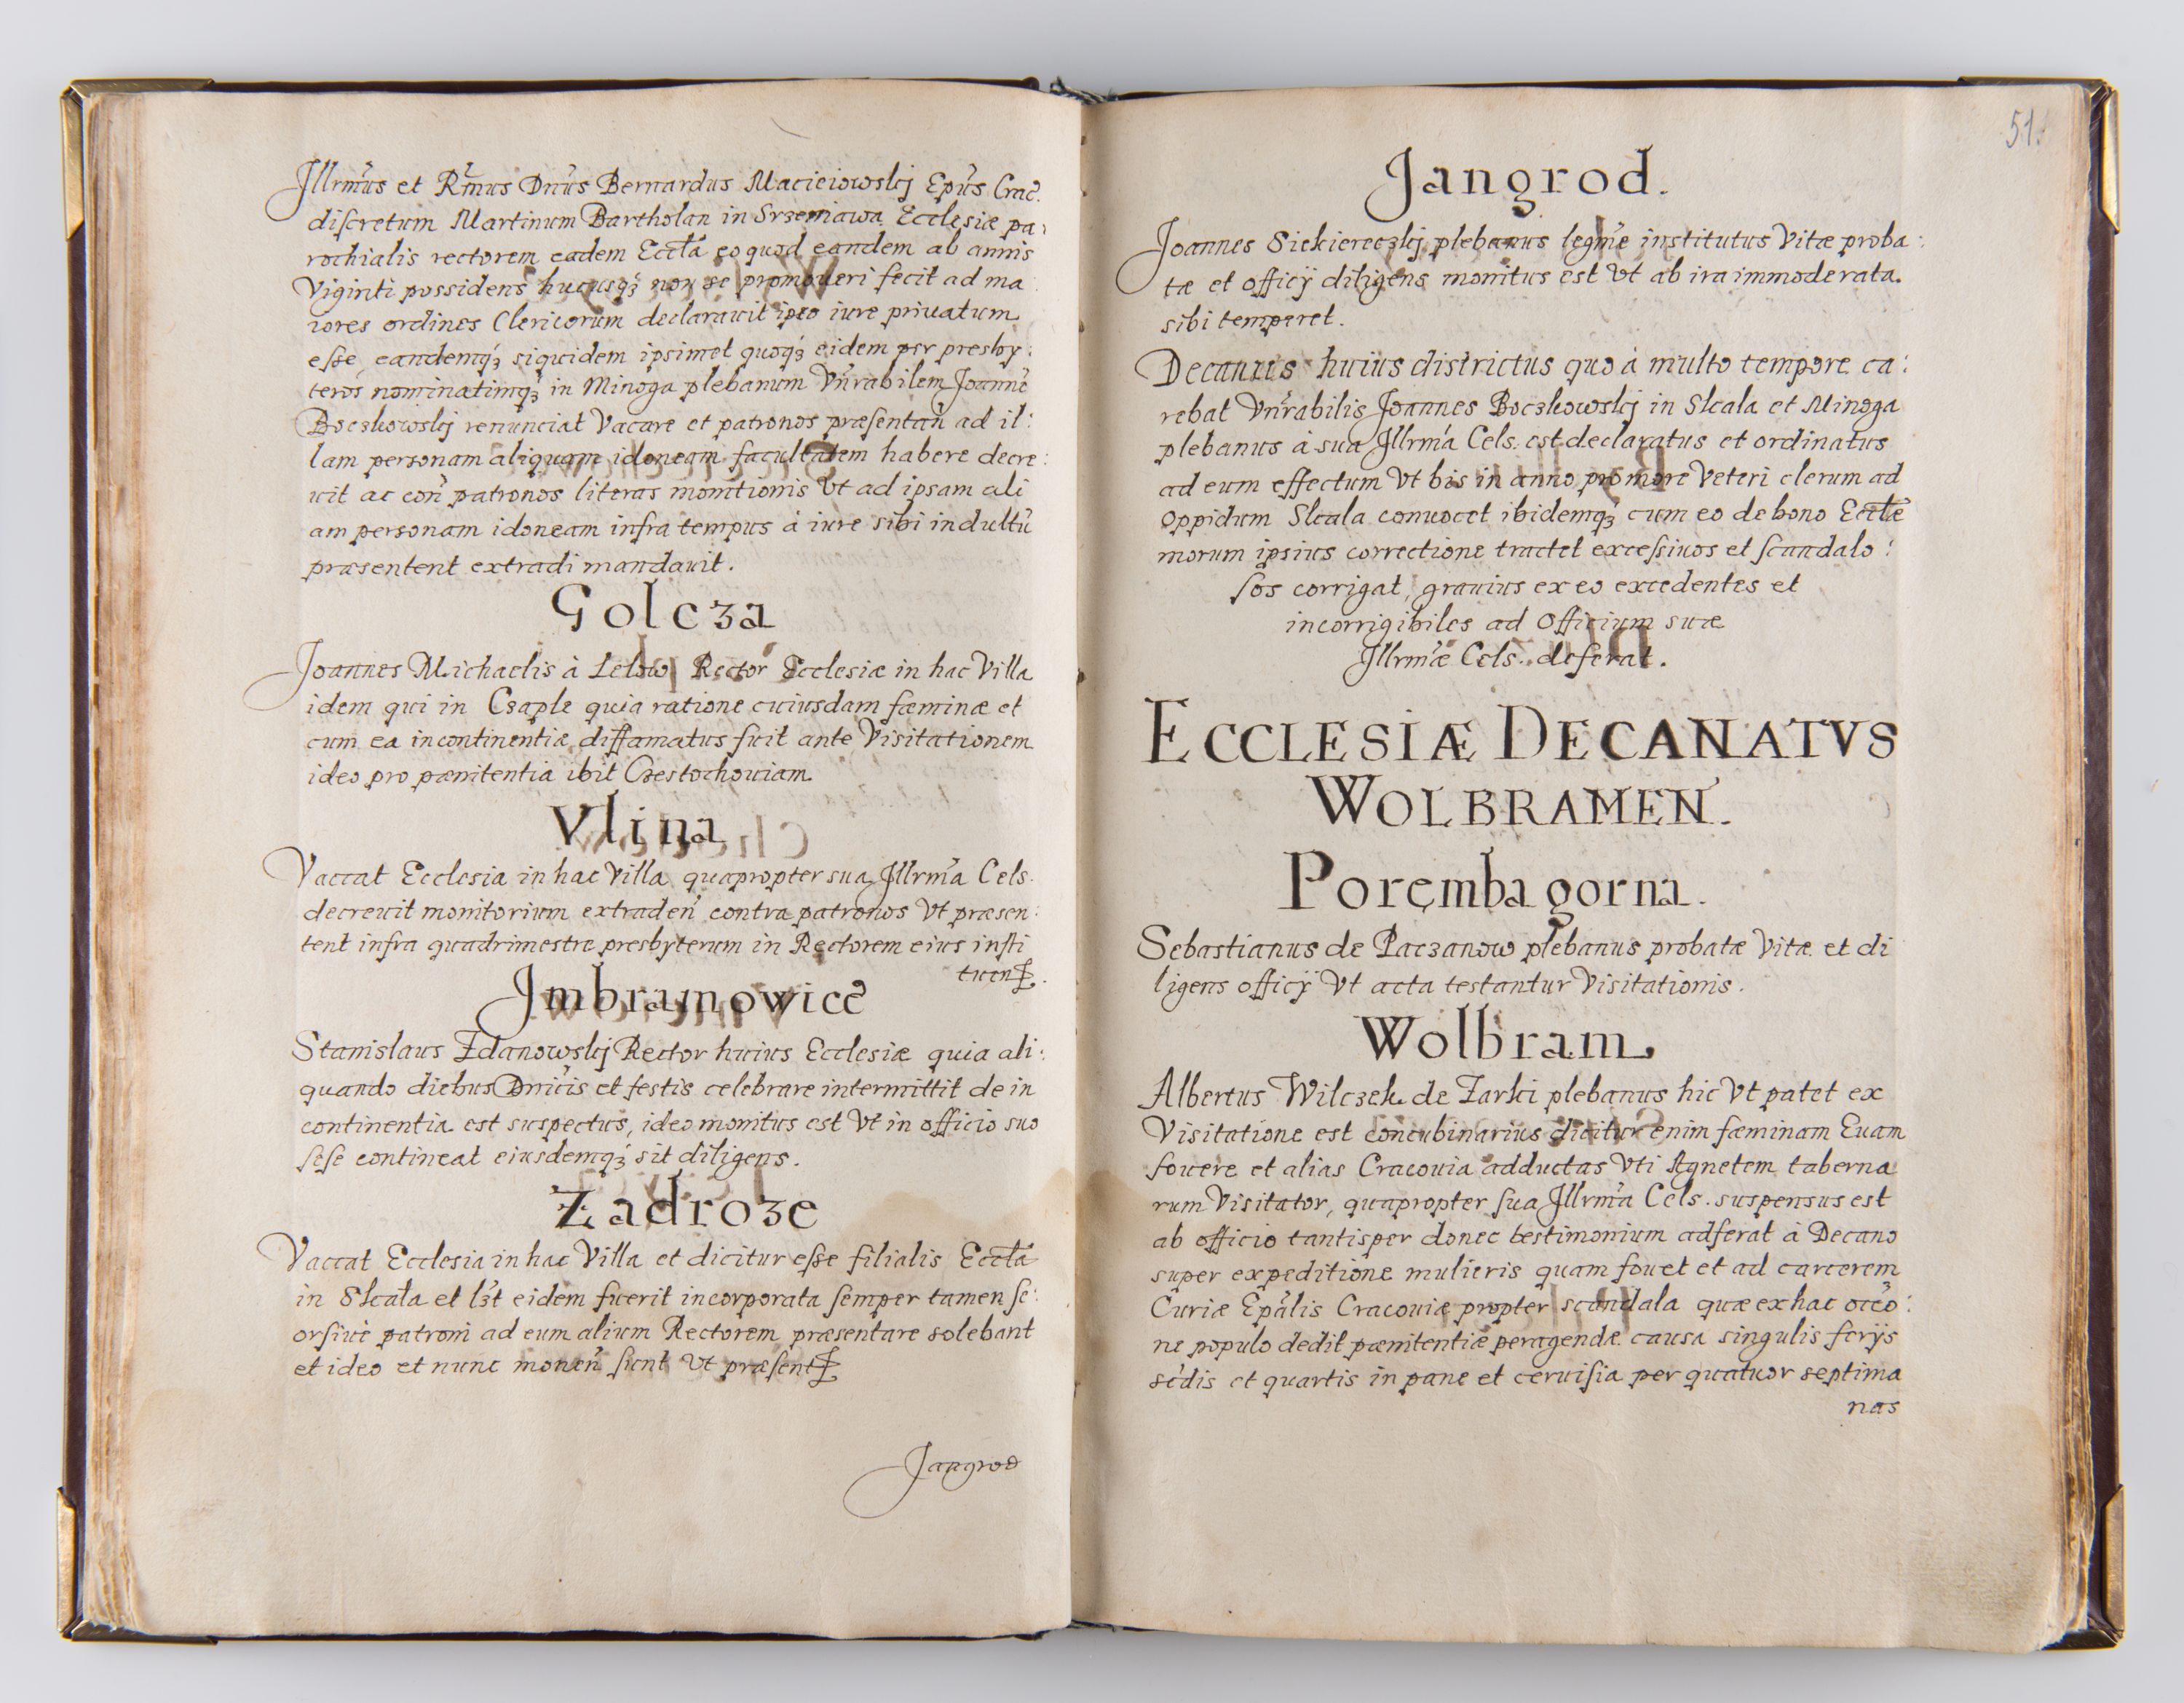 Jllrmus et Rmus Dnus Bernardus Macieiowskj Epus Crac.
discretum Martinum Bartholan in Srzeniawa Ecclesiæ pa
rochialis rectorem eadem Eccla eo quod eandem ab annis
Viginti possidens hucusq; non se promoueri fecit ad ma
iores ordines Clericorum declarauit ipso iure priuatum
esse, eandemq; siquidem ipsimet quoq; eidem per presby:
teros nominatimq; in Minoga plebanum Vnrabilem Joanne
Boczkowskj renunciat Vacare et patronos præsentan ad il:
lam personam aliquam idoneam facultatem habere decre:
uit ac con patronos literas monitionis Vt ad ipsam ali
am personam idoneam infra tempus à iure sibi indultu
præsentent extradi mandauit.
Golcza
Joannes Michaelis à Lelow Rector Ecclesiæ in hac Villa
idem qui in Czaple quia ratione cuiusdam fæminæ et
cum ea incontinentiæ diffamatus fuit ante Visitationem
ideo pro pænitentia ibit Czestochouiam.
Vlina
Vaccat Ecclesia in hac Villa quapropter sua Jllrma Cels.
decreuit monitorium extraden contra patronos Vt præsen:
tent infra quadrimestre presbyterum in Rectorem eius insti
tuen
Jmbramowice
Stanislaus Zdanowskj Rector huius Ecclesiæ quia ali:
quando diebus Dnicis et festis celebrare intermittit de in
continentia est suspectus, ideo monitus est Vt in officio suo
sese contineat eiusdemq; sit diligens.
Zadroze
Vaccat Ecclesia in hac Villa et dicitur esse filialis Eccla
in Skala et lzt eidem fuerit incorporata semper tamen se:
orsiue patroni ad eum alium Rectorem præsentare solebant
et ideo et nunc monen sunt Vt præsent
Jangrod
51.
Jangrod.
Joannes Siekiereczkj plebanus legme institutus Vitæ proba:
tæ et officÿ diligens monitus est Vt ab ira immoderata
sibi temperet.
Decanus huius districtus quo à multo tempore ca:
rebat Vnrabilis Joannes Boczkowskj in Skala et Minoga
plebanus à sua Jllrma Cels. est declaratus et ordinatus
ad eum effectum Vt bis in anno pro more Veteri clerum ad
oppidum Skala conuocet ibidemq; cum eo de bono Ecclæ
morum ipsius correctione tractet excessiuos et scandalo:
sos corrigat, grauius ex eo excedentes et
incorrigibiles ad Officium suæ
Jllrmæ Cels. deferat.
ECCLESIÆ DECANATVS
WOLBRAMEN.
Poręmba gorna.
Sebastianus de Paczanow plebanus probatæ Vitæ et di
ligens officÿ Vt acta testantur Visitationis.
Wolbram
Albertus Wilczek de Zarki plebanus hic Vt patet ex
Visitatione est concubinarius dicitur enim fæminam Euam
fouere et alias Cracouia adductas Vti Agnetem taberna
rum Visitator, quapropter sua Jllrma Cels. suspensus est
ab officio tantisper donec testimonium adferat à Decano
super expeditione mulieris quam fouet et ad carcerem
Curiæ Epalis Cracouiæ propter scandala quæ ex hac occo:
ne populo dedit pænitentiæ peragendæ causa singulis ferÿs
sedis et quartis in pane et ceruisia per quatuor septima
nas